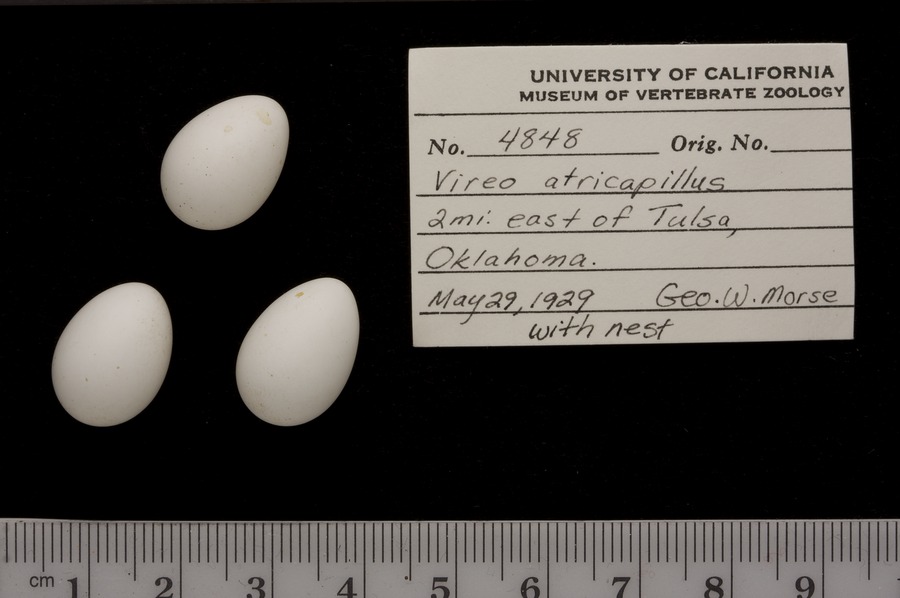 UNIVERSITY OF CALIFORNIA
MUSEUM OF VERTEBRATE ZOOLOGY
No. 4848 Orig. No.
Vireo atricapillus
2mi. east of Tulsa,
Oklahoma.
May 29, 1929 Geo. W. Morse
with nest
cm 1 2 3 4 5 6 7 8 9